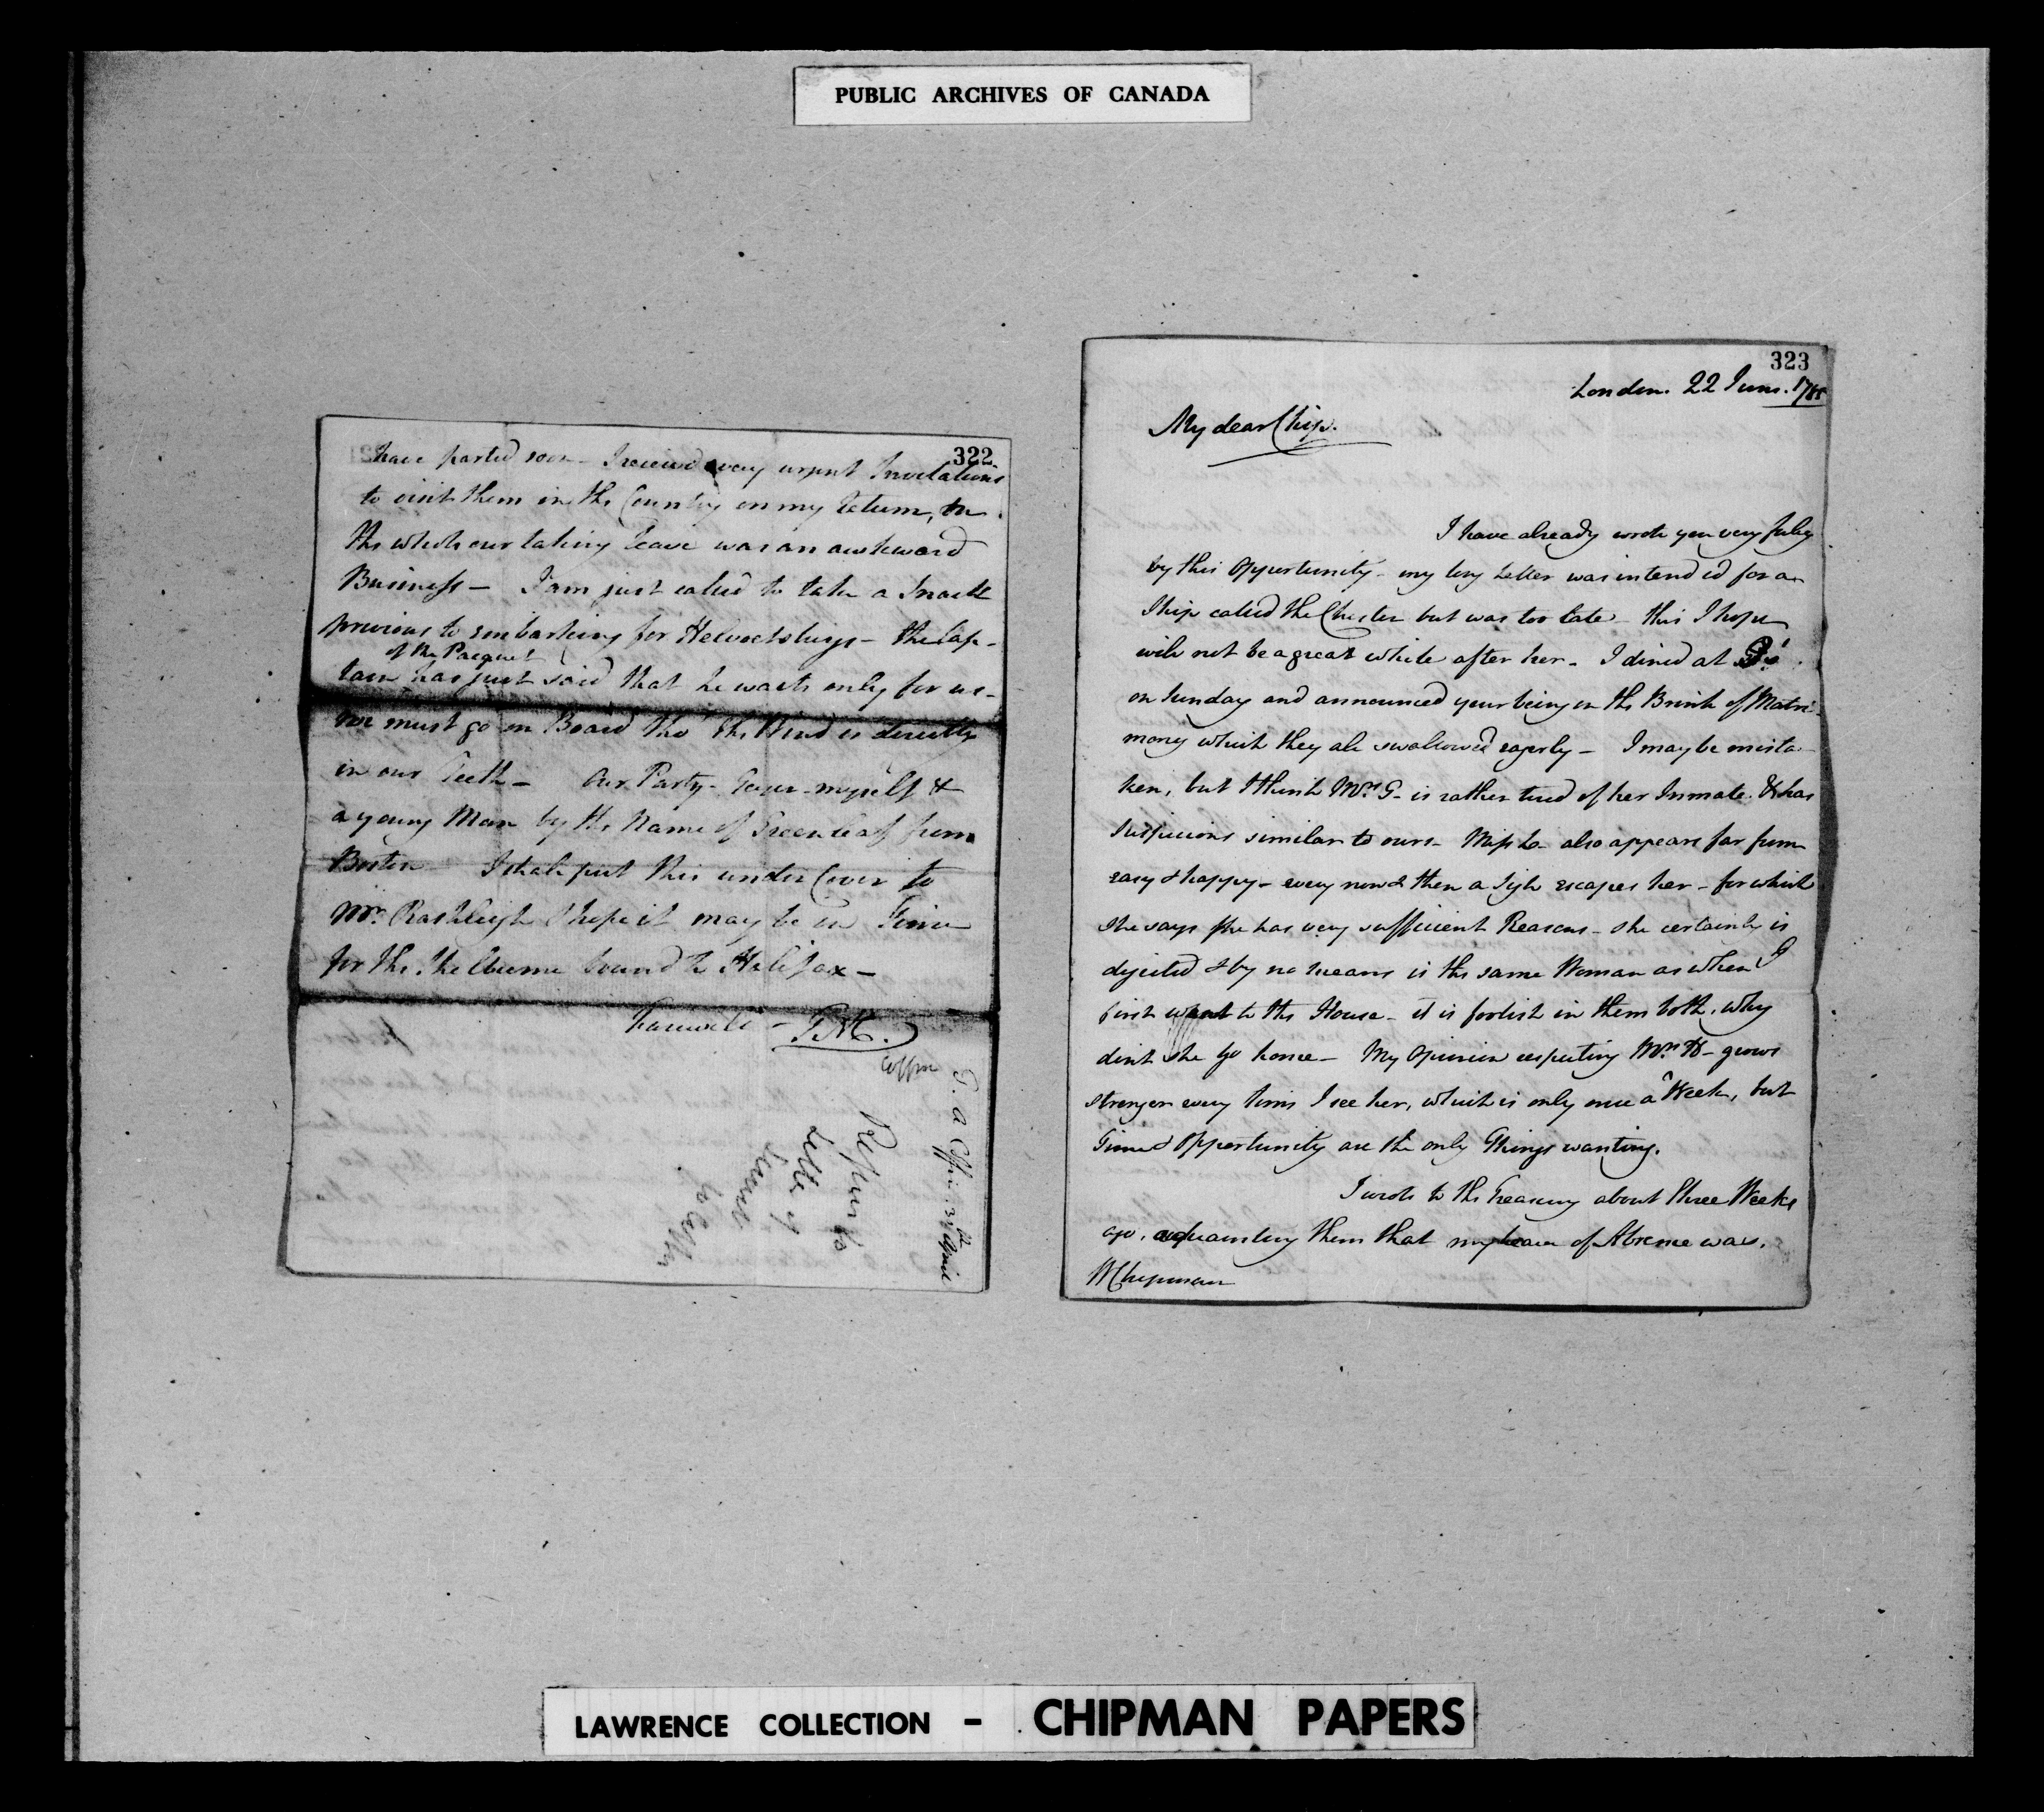 PUBLIC ARCHIVES OF CANADA
322
have parted soon – I received very urgent Invitations
to visit them in the Country on my return, on
the whole our taking leave was an awkward
Business – I am just called to take a Snack
previous to embarking for Helvoetsluys – the Cap-
of the Pacquet
tain has just said that he waits only for us –
we must go on Board tho' the Wind is directly
in our Teeth – Our Party – myself &
a young Man by the Name of Greenleaf from
Boston – I shall put this under Cover to
Mr. Rashleigh I hope it may be in Time
for the Shelburne bound to Halifax –
Farewell –
Coffin
T. A. Coffin April
Letter of
323
London. 22 June. 1785
My dear Chip.
I have already wrote you very fully
by this Opportunity – my long Letter was intended for a
Ship called the Chester but was too late – this I hope
will not be a great while after her – I dined at G's
on Sunday and announced your being on the Brink of Matri-
mony which they all swallowed eagerly – I may be mista-
ken, but I think Mrs G– is rather tired of her Inmate. & has
suspicions similar to ours – Miss Lo– also appears far from
easy & happy – every now & then a Sigh escapes her – for which
she says she has very sufficient Reasons – she certainly is
dejected & by no means is the same Woman as when I
first went to the House – it is foolish in them both, why
dont she go home – My Opinion respecting Mrs H– grows
stronger every time I see her, which is only once a Week, but
Time & Opportunity are the only Things wanting.
I wrote to the Treasury about three Weeks
ago, acquainting them that my leave of Absence was.
W Chipman
LAWRENCE COLLECTION – CHIPMAN PAPERS